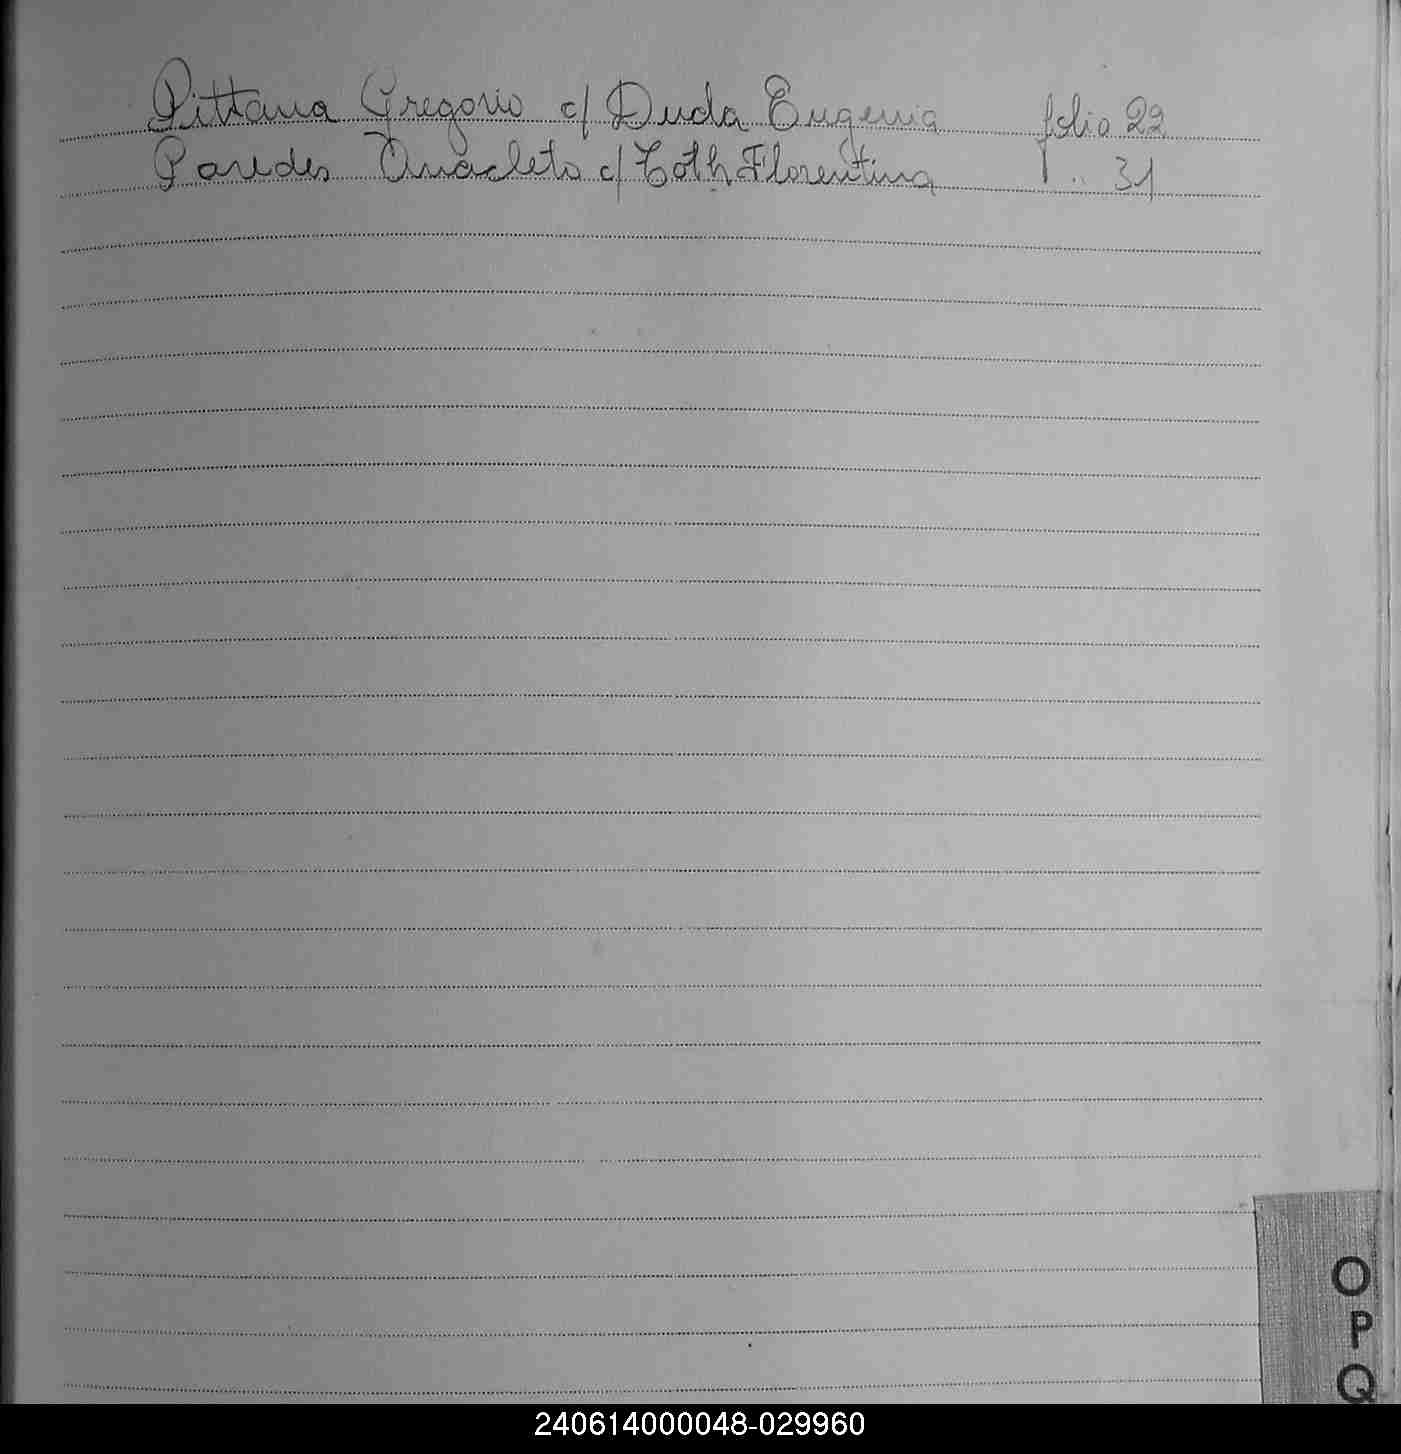 Pittana Gregorio c/ Duda Eugenia folio 22
Paredes Anacleto c/ Toth Florentina " 31
O
P
Q
240614000048-029960